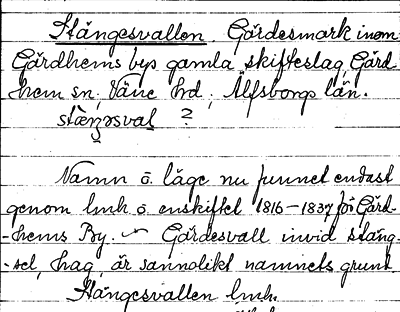 Stängesvallen. Gärdesmark inom
Gärdhems bys gamla skifteslag, Gärd
hem sn, Väne hd, Älfsborgs län.
stæŋəsval ?
Namn o. läge nu funnet endast
genom lmh o. enskiftet 1816-1837 för Gärd-
-hems By. ~ Gärdesvall invid stäng-
-sel, hag, är sannolikt namnets grund
Stängesvallen lmh.